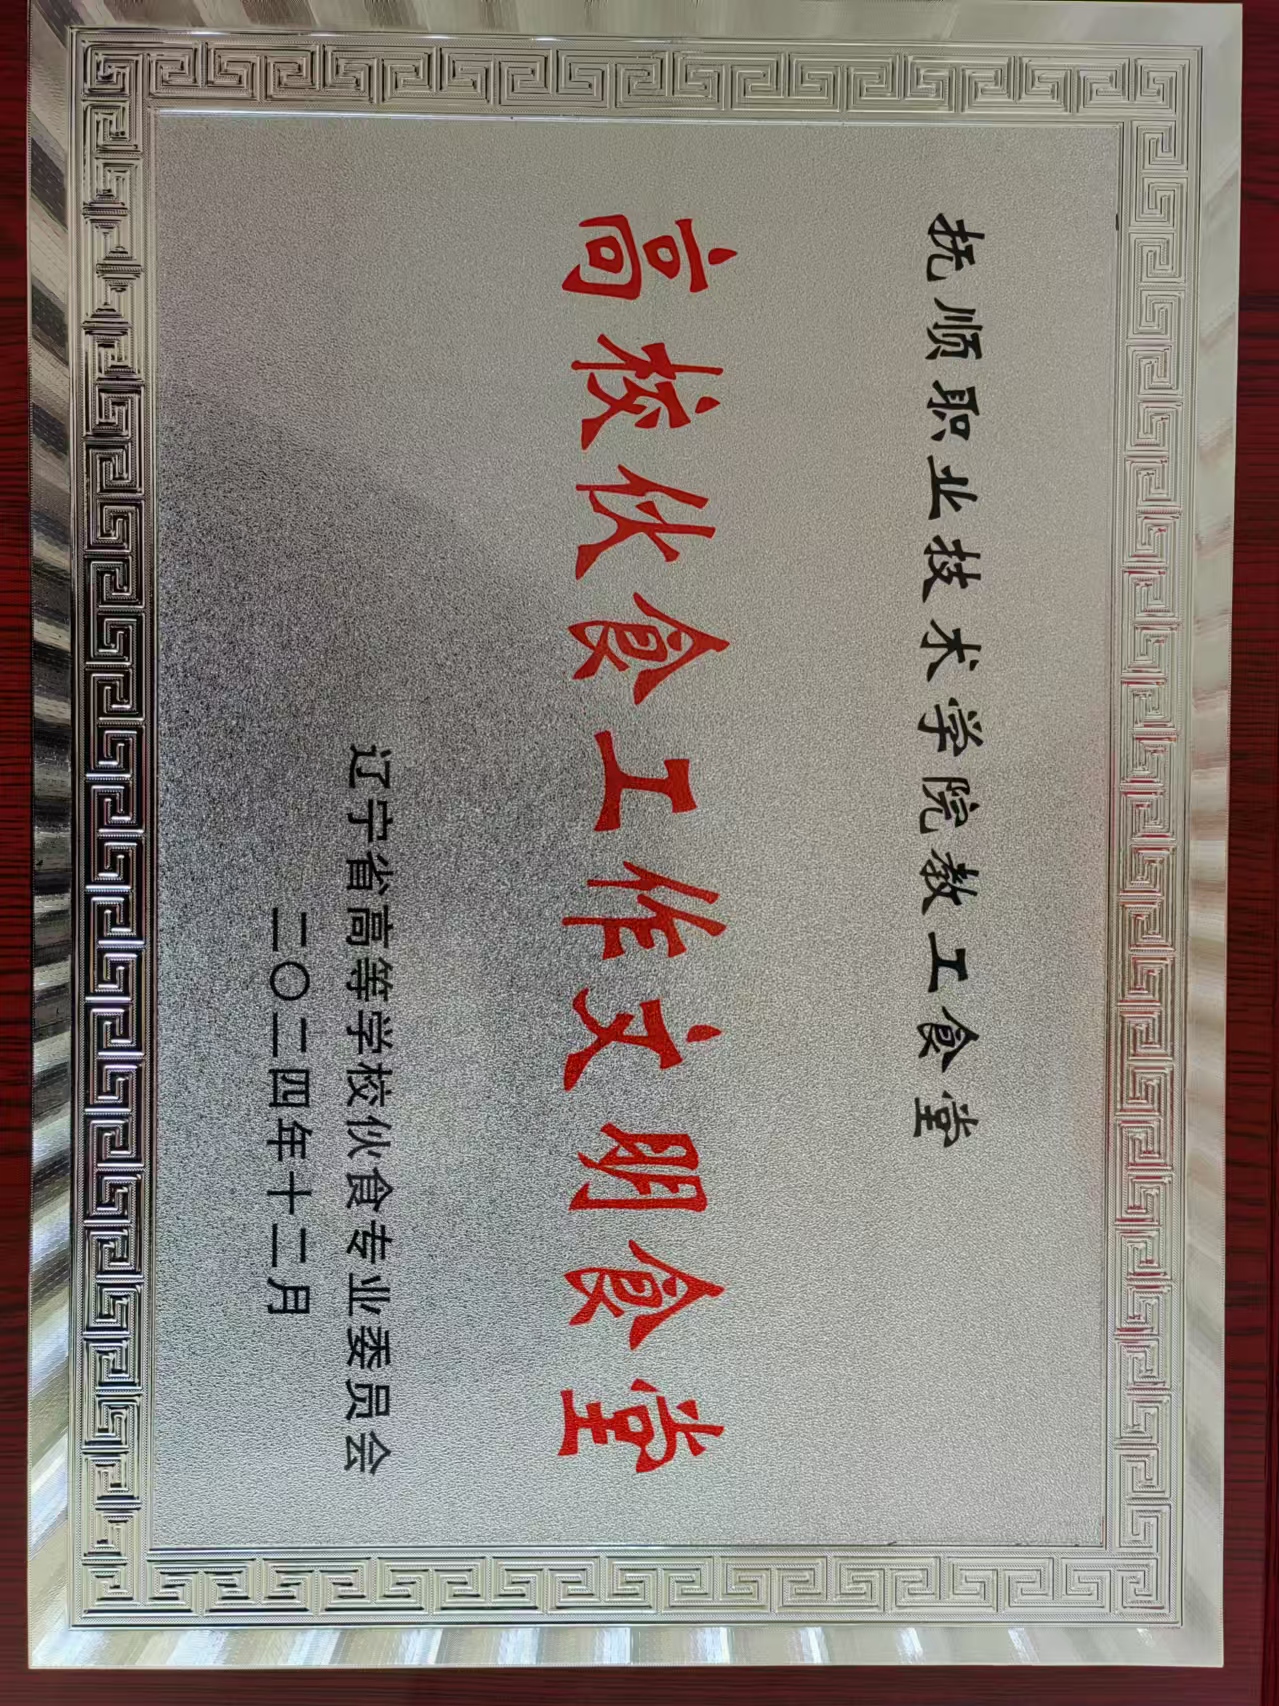 抚顺职业技术学院教工食堂
高校伙食工作文明食堂
辽宁省高等学校伙食专业委员会
二〇二四年十二月